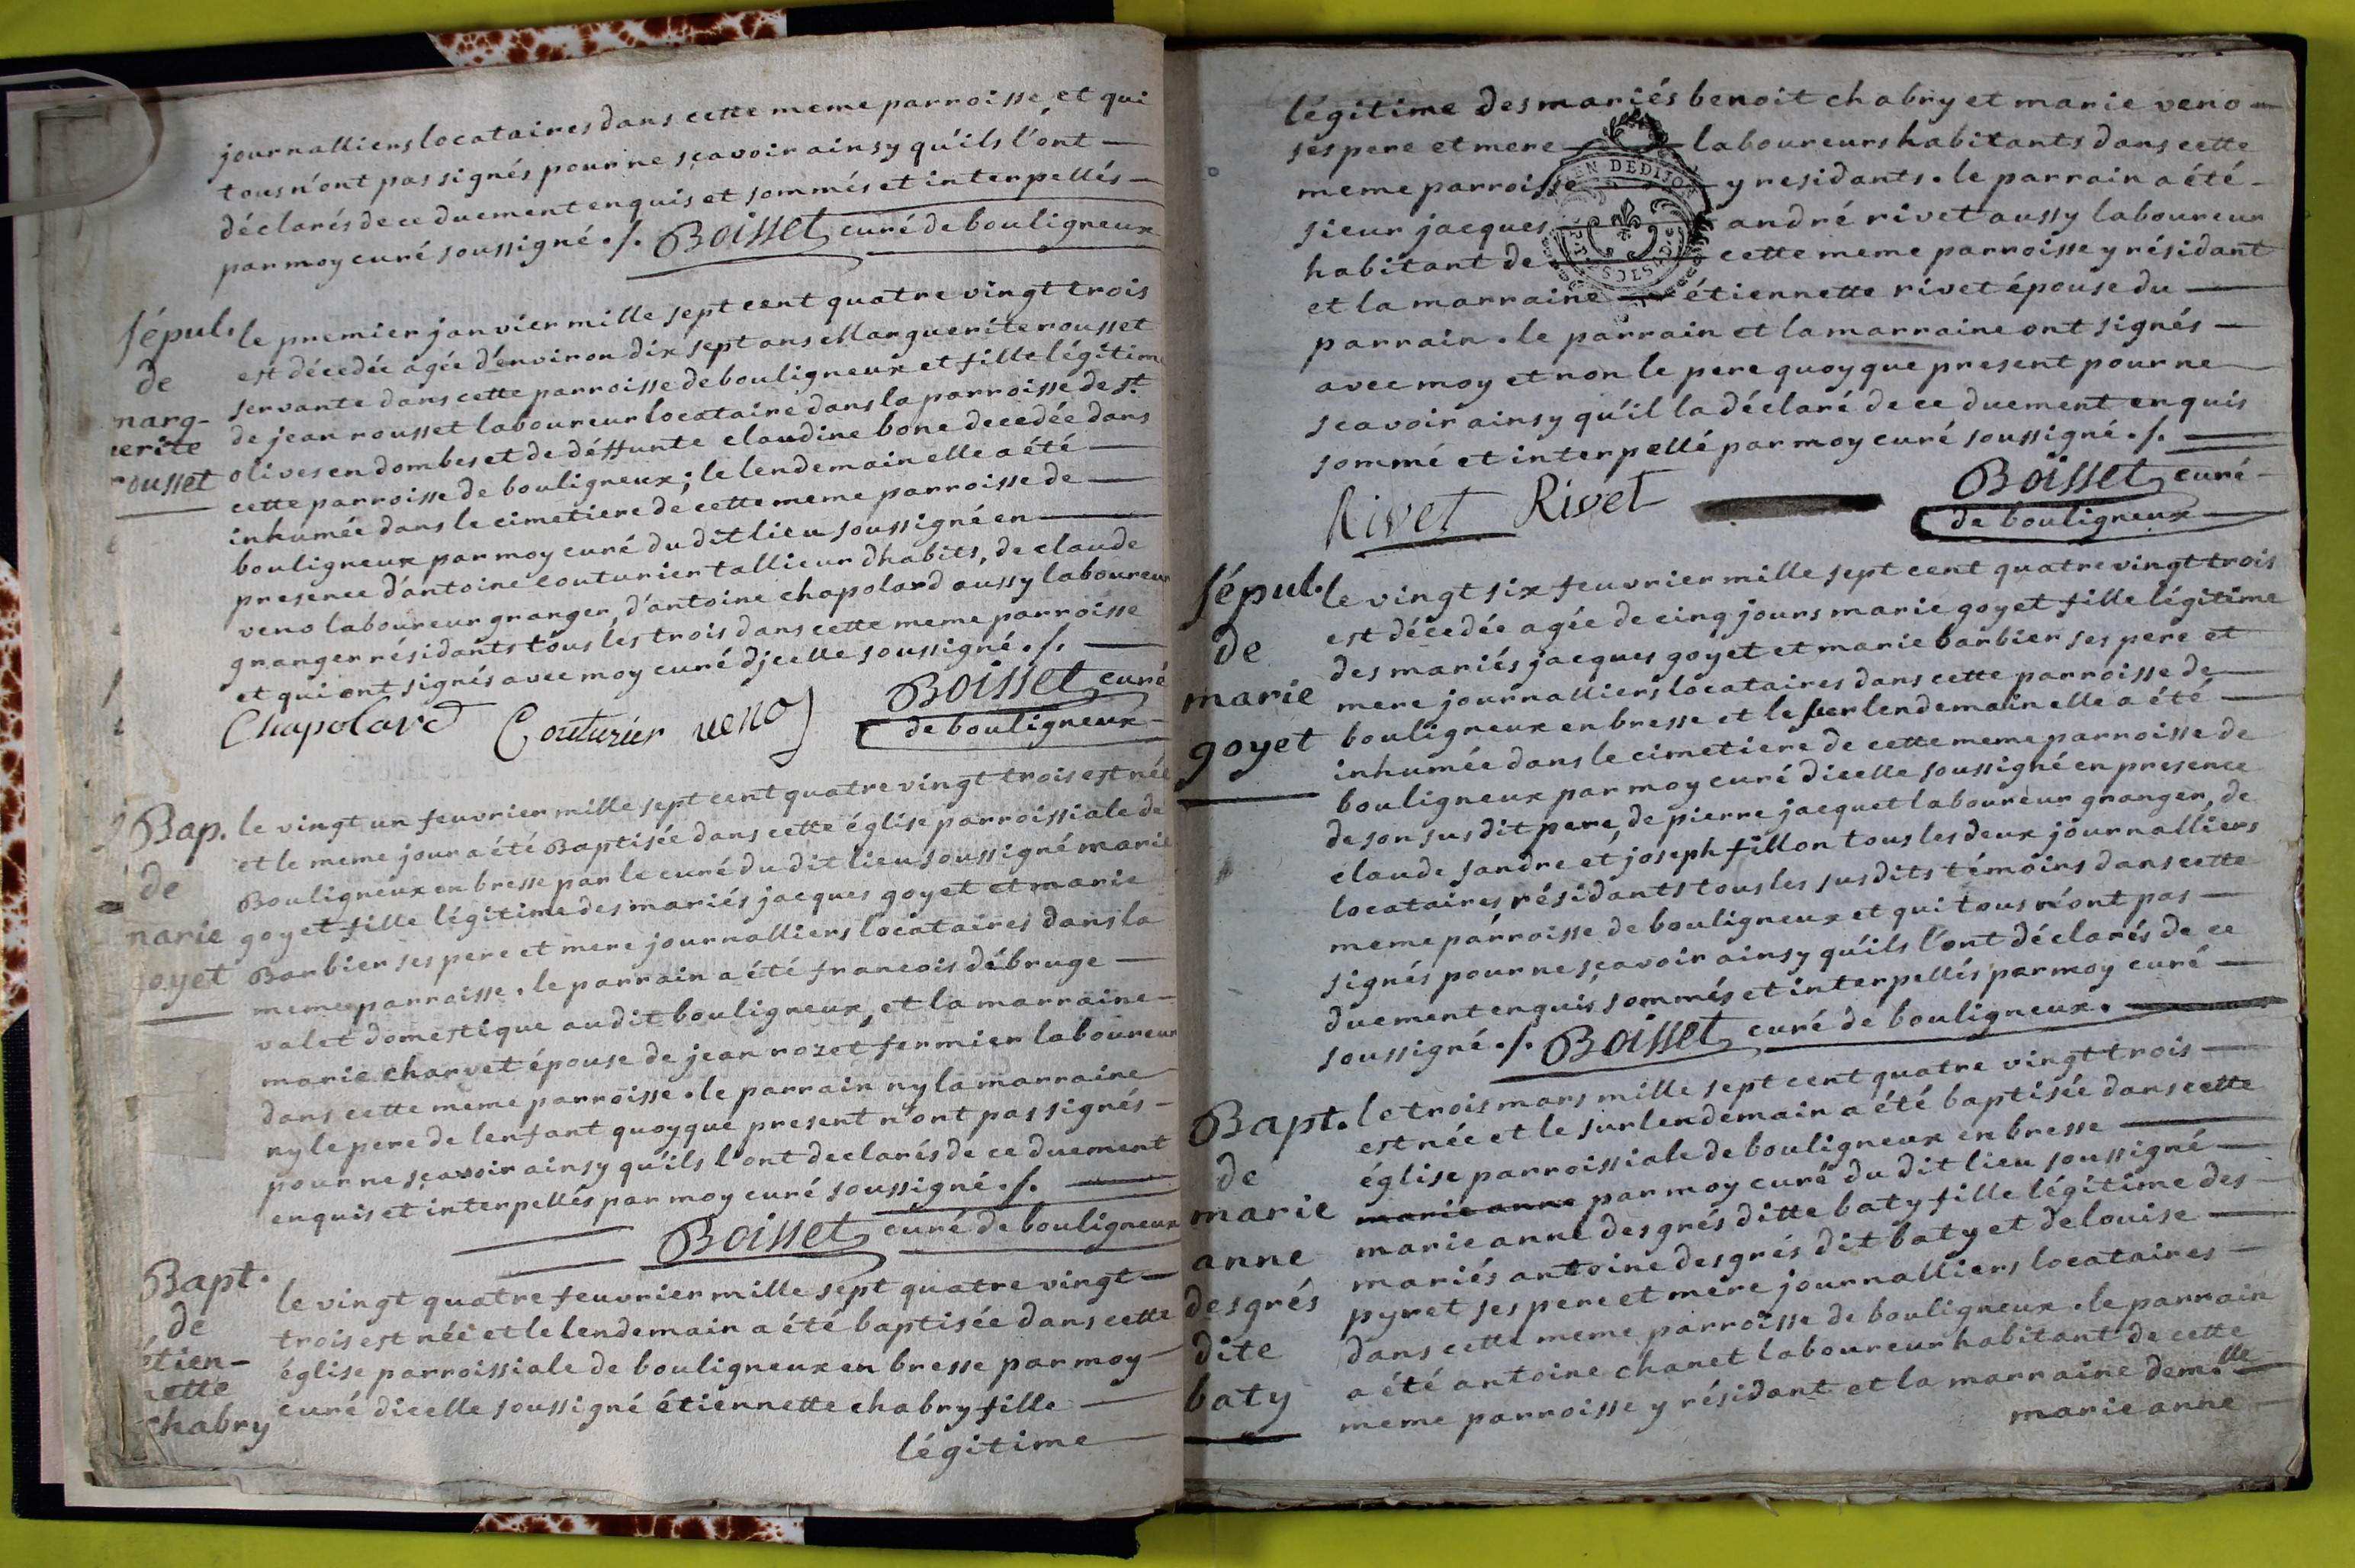 journalliers locataires dans cette meme parroisse, et qui
tous n'ont pas signés pour ne sçavoir ainsy qu'ils l'ont —
déclarés de ce duement enquis et sommés et interpellés —
par moy curé soussigné ./. Boisset curé de bouligneux
sépul.
de
marg-
uerite
rousset
le premier janvier mille sept cent quatre vingt trois
est décedée agée d'environ dix sept ans Marguerite rousset
servante dans cette parroisse de bouligneux et fille légitime
de jean rousset laboureur locataire dans la parroisse de st.
olives en dombes et de déffunte claudine bone decedée dans
cette parroisse de bouligneux; le lendemain elle a été —
inhumée dans le cimetiere de cette meme parroisse de —
bouligneux par moy curé du dit lieu soussigné en —
presence d'antoine couturier tallieur d'habits, de claude
veno laboureur granger, d'antoine chapolard aussy laboureur
granger résidants tous les trois dans cette meme parroisse
et qui ont signés avec moy curé djcelle soussigné ./. —
Chapolard Couturier veno Boisset curé
de bouligneux
Bap.
de
marie
goyet
le vingt un feuvrier mille sept cent quatre vingt trois est née
et le meme jour a été Baptisée dans cette église parroissiale de
Bouligneux en bresse par le curé du dit lieu soussigné marie
goyet fille légitime des mariés jacques goyet et marie
Barbier ses pere et mere journalliers locataires dans la
meme parroisse. le parrain a été francois débruge —
valet domestique audit bouligneux, et la marraine —
marie charvet épouse de jean rozet fermier laboureur
dans cette meme parroisse. le parrain ny la marraine
ny le pere de lenfant quoyque present n'ont pas signés —
pour ne sçavoir ainsy qu'ils l'ont declarés de ce duement
enquis et interpellés par moy curé soussigné ./. —
Boisset curé de bouligneux
Bapt.
de
étien-
nette
chabry
le vingt quatre feuvrier mille sept quatre vingt —
trois est née et le lendemain a été baptisée dans cette
église parroissiale de bouligneux en bresse par moy
curé dicelle soussigné étiennette chabry fille —
légitime
légitime des mariés benoit chabry et marie veno —
ses pere et mere — laboureurs habitants dans cette
meme parroisse — y residants. le parrain a été —
sieur jacques — andré rivet aussy laboureur
habitant de — cette meme parroisse y résidant
et la marraine — étiennette rivet épouse du —
parrain. le parrain et la marraine ont signés —
avec moy et non le pere quoyque present pour ne
scavoir ainsy qu'il la déclaré de ce duement enquis
sommé et interpellé par moy curé soussigné ./. —
EN DE DIJON
Rivet Rivet Boisset curé
de bouligneux
sépul.
de
marie
goyet
le vingt six feuvrier mille sept cent quatre vingt trois
est décedée agée de cinq jours marie goyet fille légitime
des mariés jacques goyet et marie barbier ses pere et
mere journalliers locataires dans cette parroisse de —
bouligneux en bresse et le surlendemain elle a été —
inhumée dans le cimetiere de cette meme parroisse de
bouligneux par moy curé dicelle soussigné en presence
de son susdit pere, de pierre jacquet laboureur granger, de
claude sandre et joseph fillon tous les deux journalliers
locataires résidants tous les susdits témoins dans cette
meme parroisse de bouligneux et qui tous n'ont pas —
signés pour ne sçavoir ainsy qu'ils l'ont déclarés de ce
duement enquis, sommés et interpellés par moy curé —
soussigné ./. Boisset curé de bouligneux.
Bapt.
de
marie
anne
desgrés
dite
baty
le trois mars mille sept cent quatre vingt trois —
est née et le surlendemain a été baptisée dans cette
église parroissiale de bouligneux en bresse —
marie anne par moy curé du dit lieu soussigné —
marie anne desgrés ditte baty fille légitime des —
mariés antoine desgrés dit baty et de louise —
pyret ses pere et mere journalliers locataires —
dans cette meme parroisse de bouligneux. le parrain
a été antoine chanet laboureur habitant de cette
meme parroisse y résidant et la marraine dem.lle
marie anne